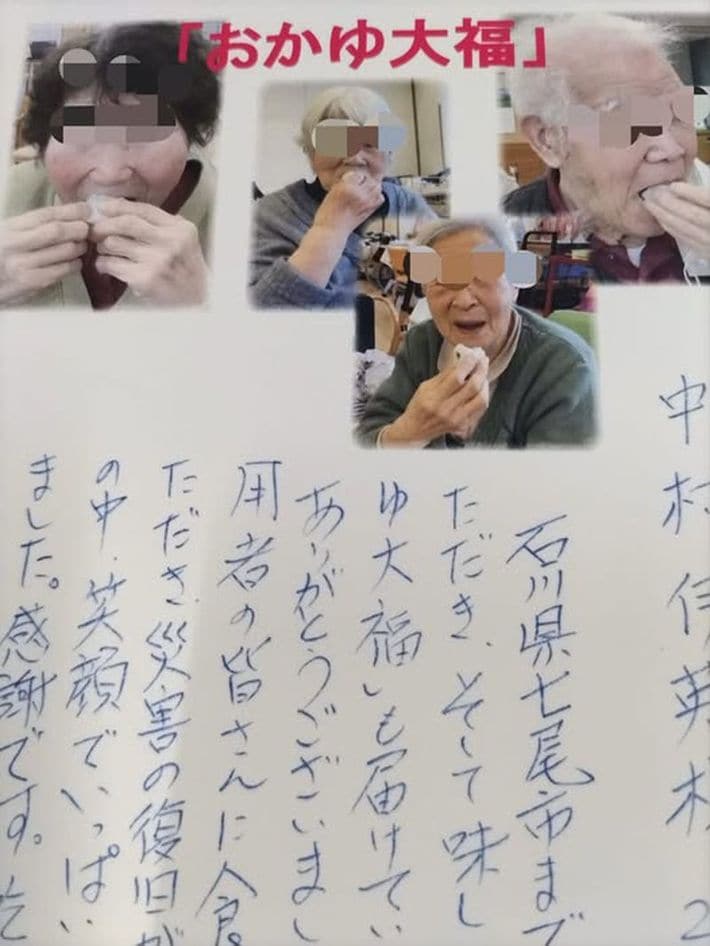 「おかゆ大福」
中村伊英様
石川県七尾市まで
ただき、そして味し
ゆ大福」も届けてい
ありがとうございまし
用者の皆さんに食
ただき、災害の復旧が
の中、笑顔でいっぱい
ました。感謝です。